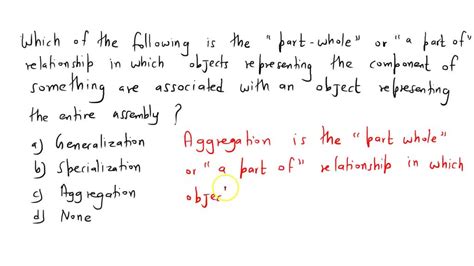 Which of the following is the "part-whole" or "a part of"
relationship in which objects representing the component of
something are associated with an object representing
the entire assembly ?
a) Generalization
b) Specialization
c) Aggregation
d) None
Aggregation is the "part whole"
or "a part of" relationship in which
objec